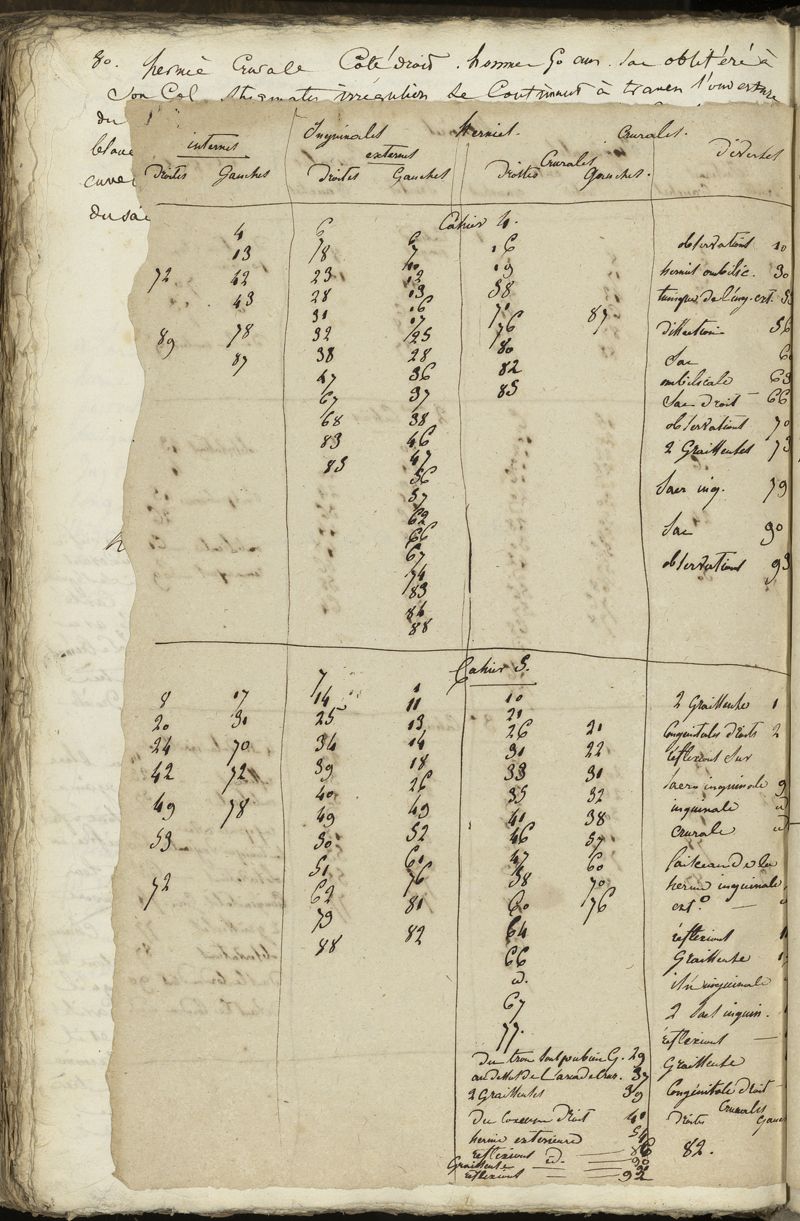 80. hernie Crurale Côté droit. homme 50 ans. Sac oblitéré à
Son Col Stigmates irréguliers Se Continuant à travers l'ouverture
du
cuve
du sac
Inguinales Hernies. Crurales.
internes externes Crurales Diverses
Droites Gauches Droites Gauches Droites Gauches.
Cahier 4.
4 6 6 16 observations 10
13 18 7 19 hernie ombilic. 30
72 42 23 10 58 tunique de l'ing. ext. 53
43 28 12 71 87 dissection 56
89 78 31 13 76 Sac 60
87 32 16 80 ombilicale 63
38 17 82 Sac droit — 66
47 25 85 observations 70
67 28 2 Graisseuses 73
68 36 Sacs ing. 79
83 37 Sac 90
85 38 observations 93
46
47
56
57
62
66
67
74
83
84
88
Cahier 5.
8 17 7 1 10 2 Graisseuse 1
20 31 14 11 21 21 Congénitales droites 2
24 70 25 13 26 22 réflexions Sur
42 72 34 14 31 31 Sacs inguinale 9
49 78 39 18 33 32 inguinale id
53 40 26 35 38 crurale id
72 49 49 41 57 faisceau de la
50 52 46 60 hernie inguinale
51 60 47 70 ext.e —
62 76 58 76 réflexions
79 81 60 Graisseuse
88 82 64 inguinale
66 2 Sacs inguin.
id. réflexions —
67 Graisseuse
77. Congénitale droit —
du trou Souspubien G. 29
au dessus de L'arcade Crur. 37
2 Graisseuses 39
du Coecum droit 40
hernie exterieure 54
reflexions — 86
Graisseuse id. — 90
reflexions — 92
Crurales
droites Gauches
82.